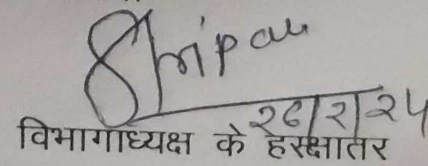 Shripal
२८/२/२५
विभागाध्यक्ष के हस्साक्षातर